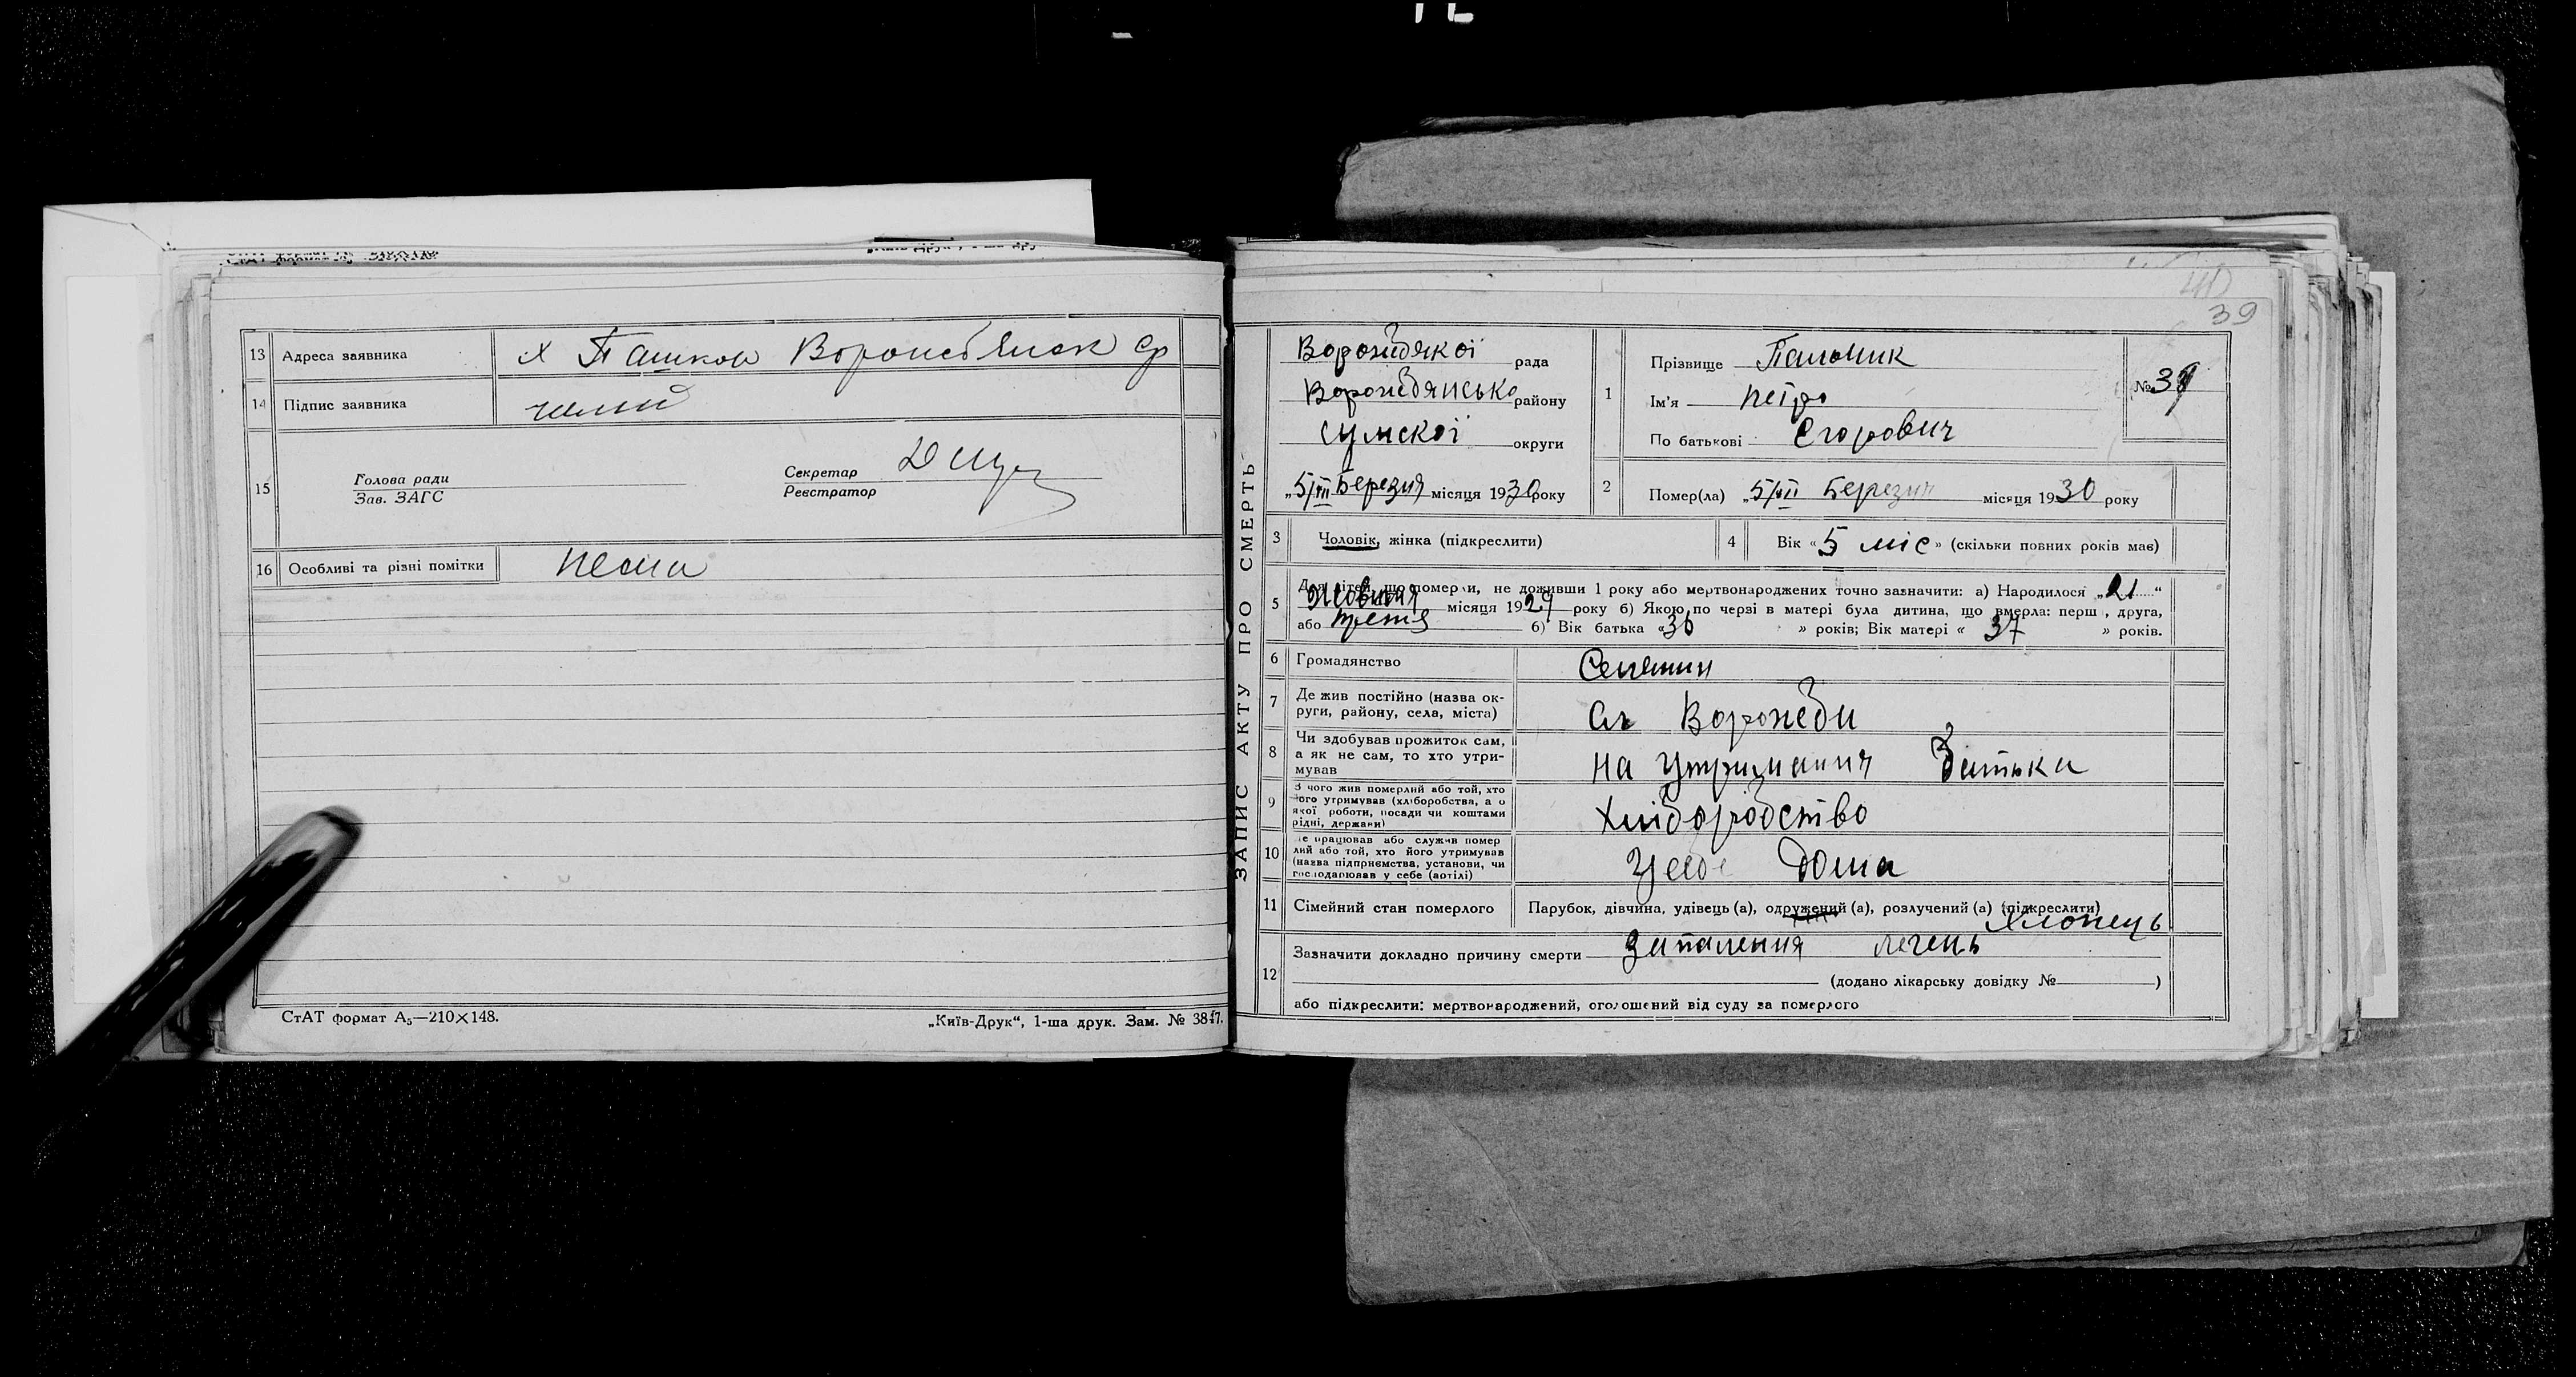 13 Адреса заявника х Пашков Воронебянск ср
14 Підпис заявника
15 Голова ради
Зав. ЗАГС
Секретар
Реєстратор
16 Особливі та різні помітки нема
СтАТ формат А5—210×148.
„Київ-Друк“, 1-ша друк. Зам. № 3847.
40
39
ЗАПИС АКТУ ПРО СМЕРТЬ
Ворожбякої рада
Ворожбянсько району
Сумскої округи
„5/III Березня місяця 1930 року
1 Прізвище Пальчик
Ім'я Петро
По батькові Єгорович
№ 39
2 Помер(ла) „5/III Березня місяця 1930 року
3 Чоловік, жінка (підкреслити)
4 Вік «5 міс» (скільки повних років має)
5 Для дітей, що померли, не доживши 1 року або мертвонароджених точно зазначити: а) Народилося „21“
Жовтня місяця 1929 року б) Якою по черзі в матері була дитина, що вмерла: перш , друга,
або третя б) Вік батька «36 » років; Вік матері « 37 » років.
6 Громадянство Селянин
7 Де жив постійно (назва округи, району, села, міста) Сл Ворожби
8 Чи здобував прожиток сам, а як не сам, то хто утримував на утримання батька
9 З чого жив померлий або той, хто його утримував (хліборобства, а о якої роботи, посади чи коштами рідні, держави) хліборобство
10 Де працював або служив померлий або той, хто його утримував (назва підприємства, установи, чи господарював у себе (артілі) У себе дома
11 Сімейний стан померлого Парубок, дівчина, удівець (а), одружений (а), розлучений (а) (підкреслити)
хлопець
12 Зазначити докладно причину смерти запалення легень
(додано лікарську довідку № )
або підкреслити: мертвонароджений, оголошений від суду за померлого